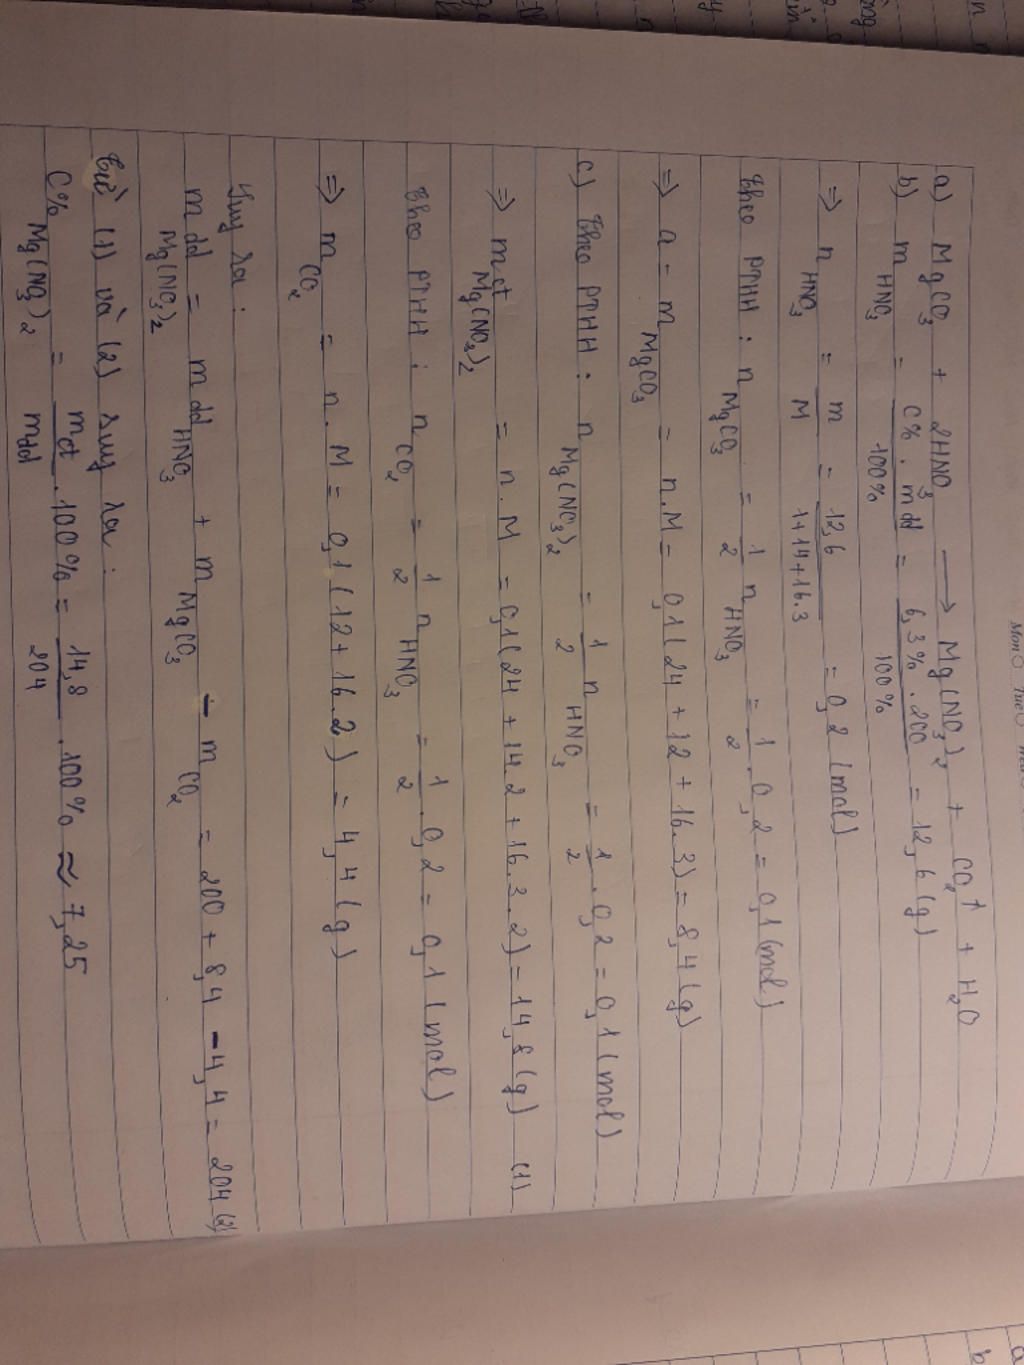 Mon Tue
a) MgCO₃ + 2HNO₃ ⟶ Mg(NO₃)₂ + CO₂↑ + H₂O
b) m HNO₃ = C% . mdd / 100% = 6,3% . 200 / 100% = 12,6 (g)
=> n HNO₃ = m / M = 12,6 / 1+14+16.3 = 0,2 (mol)
Theo PTHH : n MgCO₃ = 1/2 n HNO₃ = 1/2 . 0,2 = 0,1 (mol)
=> a = m MgCO₃ = n.M = 0,1(24 + 12 + 16.3) = 8,4 (g)
c) Theo PTHH : n Mg(NO₃)₂ = 1/2 n HNO₃ = 1/2 . 0,2 = 0,1 (mol)
=> mct Mg(NO₃)₂ = n . M = 0,1(24 + 14.2 + 16.3.2) = 14,8 (g) (1)
Theo PTHH : n CO₂ = 1/2 n HNO₃ = 1/2 . 0,2 = 0,1 (mol)
=> m CO₂ = n . M = 0,1(12 + 16.2) = 4,4 (g)
Suy ra :
mdd Mg(NO₃)₂ = mdd HNO₃ + m MgCO₃ - m CO₂ = 200 + 8,4 - 4,4 = 204 (2)
Từ (1) và (2) suy ra :
C% Mg(NO₃)₂ = mct / mdd . 100% = 14,8 / 204 . 100% ≈ 7,25